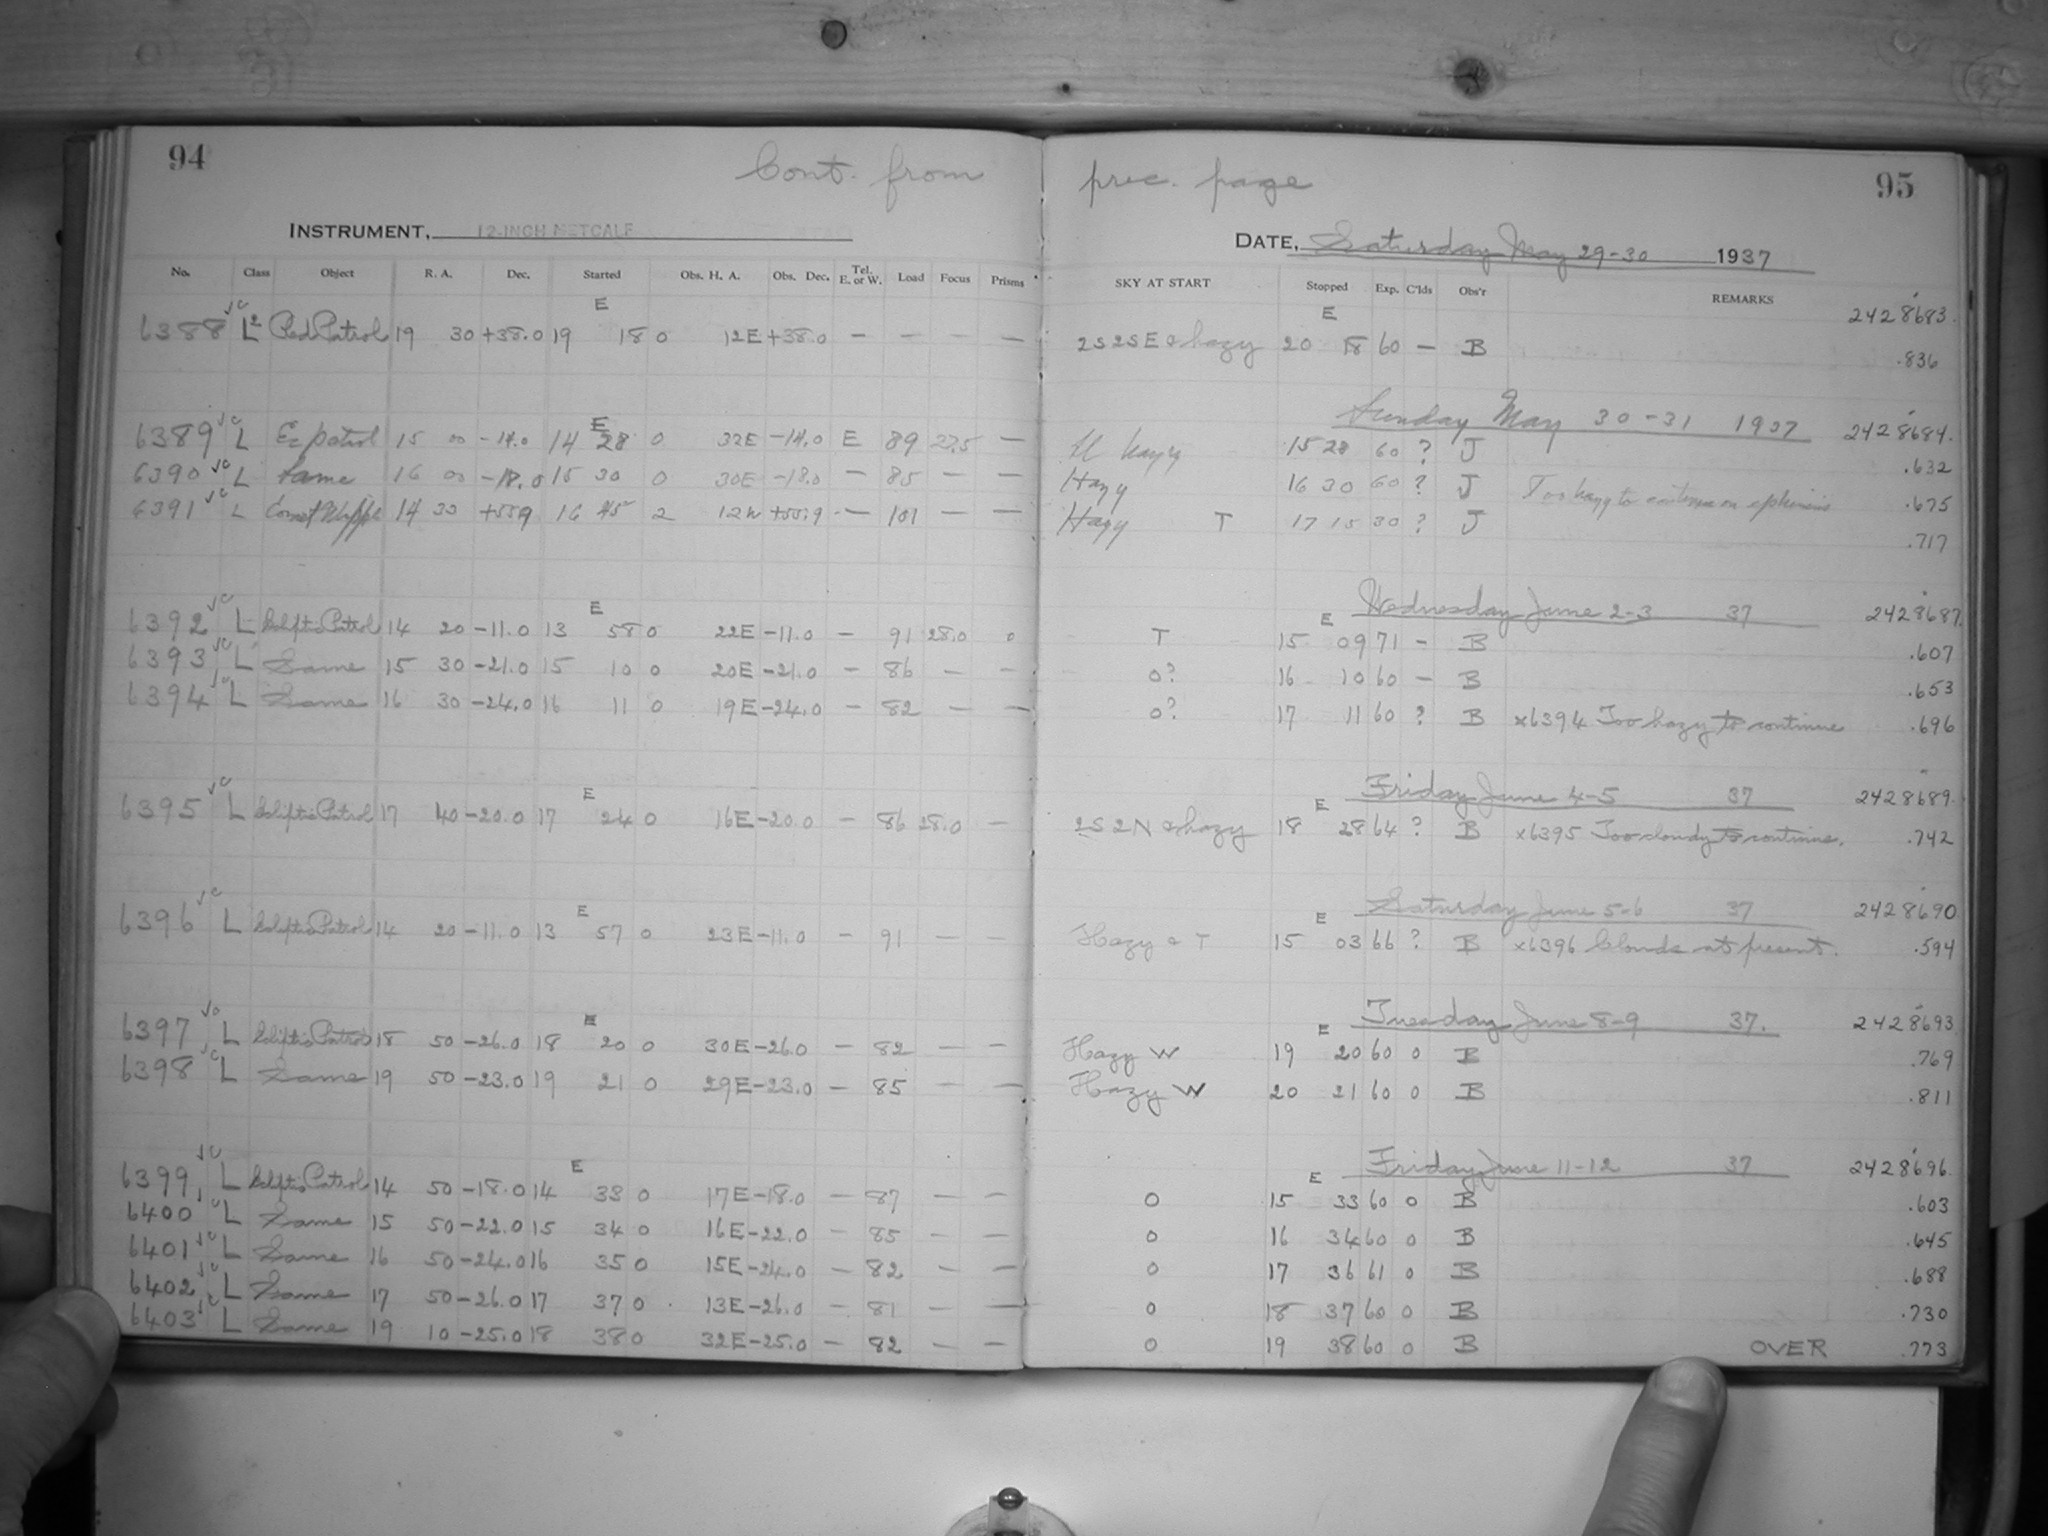 94
Cont. from prec. page
95
INSTRUMENT, 12-INCH METCALF
DATE, Saturday May 29-30 1937
No. Class Object R. A. Dec. Started Obs. H. A. Obs. Dec. Tel. E. or W. Load Focus Prisms SKY AT START Stopped Exp. C'lds Obs'r REMARKS
E E 2428683.
6388 L2 Red Patrol 19 30 +38.0 19 18 0 12E +38.0 — — — — 2S2SE & hazy 20 18 60 — B .836
Sunday May 30-31 1937 2428684.
E
6389 L Ec patrol 15 00 -14.0 14 28 0 32E -14.0 E 89 27.5 — hazy 15 28 60 ? J .632
6390 L Same 16 00 -18.0 15 30 0 30E -18.0 — 85 — — Hazy 16 30 60 ? J Too hazy to continue on .675
6391 L Comet Whipple 14 30 +55.9 16 45 2 12W +55.9 — 101 — — Hazy T 17 15 30 ? J .717
E E Wednesday June 2-3 37 2428687.
6392 L Ecliptic Patrol 14 20 -11.0 13 58 0 22E -11.0 — 91 28.0 0 T 15 09 71 — B .607
6393 L Same 15 30 -21.0 15 10 0 20E -21.0 — 86 — — 0? 16 10 60 — B .653
6394 L Same 16 30 -24.0 16 11 0 19E -24.0 — 82 — — 0? 17 11 60 ? B x6394 Too hazy to continue .696
E E Friday June 4-5 37 2428689.
6395 L Ecliptic Patrol 17 40 -20.0 17 24 0 16E -20.0 — 86 28.0 — 2S2N & hazy 18 28 64 ? B x6395 Too cloudy to continue. .742
E E Saturday June 5-6 37 2428690
6396 L Ecliptic Patrol 14 20 -11.0 13 57 0 23E -11.0 — 91 — — Hazy & T 15 03 66 ? B x6396 Clouds at present. .594
E E Tuesday June 8-9 37. 2428693.
6397 L Ecliptic Patrol 18 50 -26.0 18 20 0 30E -26.0 — 82 — — Hazy W 19 20 60 0 B .769
6398 L Same 19 50 -23.0 19 21 0 29E -23.0 — 85 — — Hazy W 20 21 60 0 B .811
E E Friday June 11-12 37 2428696.
6399 L Ecliptic Patrol 14 50 -18.0 14 33 0 17E -18.0 — 87 — — 0 15 33 60 0 B .603
6400 L Same 15 50 -22.0 15 34 0 16E -22.0 — 85 — — 0 16 34 60 0 B .645
6401 L Same 16 50 -24.0 16 35 0 15E -24.0 — 82 — — 0 17 36 61 0 B .688
6402 L Same 17 50 -26.0 17 37 0 13E -26.0 — 81 — — 0 18 37 60 0 B .730
6403 L Same 19 10 -25.0 18 38 0 32E -25.0 — 82 — — 0 19 38 60 0 B OVER .773